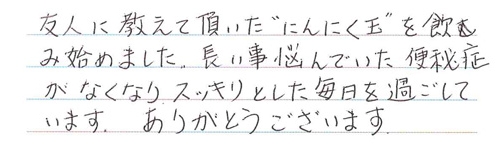 友人に教えて頂いた"にんにく玉"を飲む
み始めました。長い事悩んでいた便秘症
がなくなり スッキリとした毎日を過ごして
います。 ありがとうございます